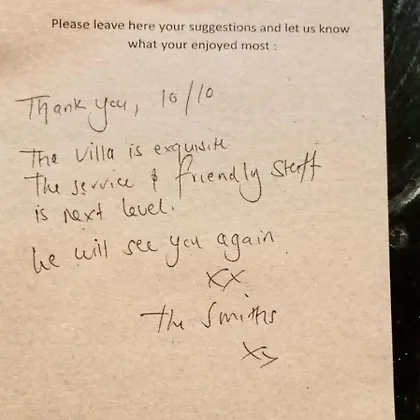 Please leave here your suggestions and let us know
what your enjoyed most :
Thank you, 10/10
The villa is exquisite
The service & friendly staff
is next level.
We will see you again
XX
The Smiths
XX